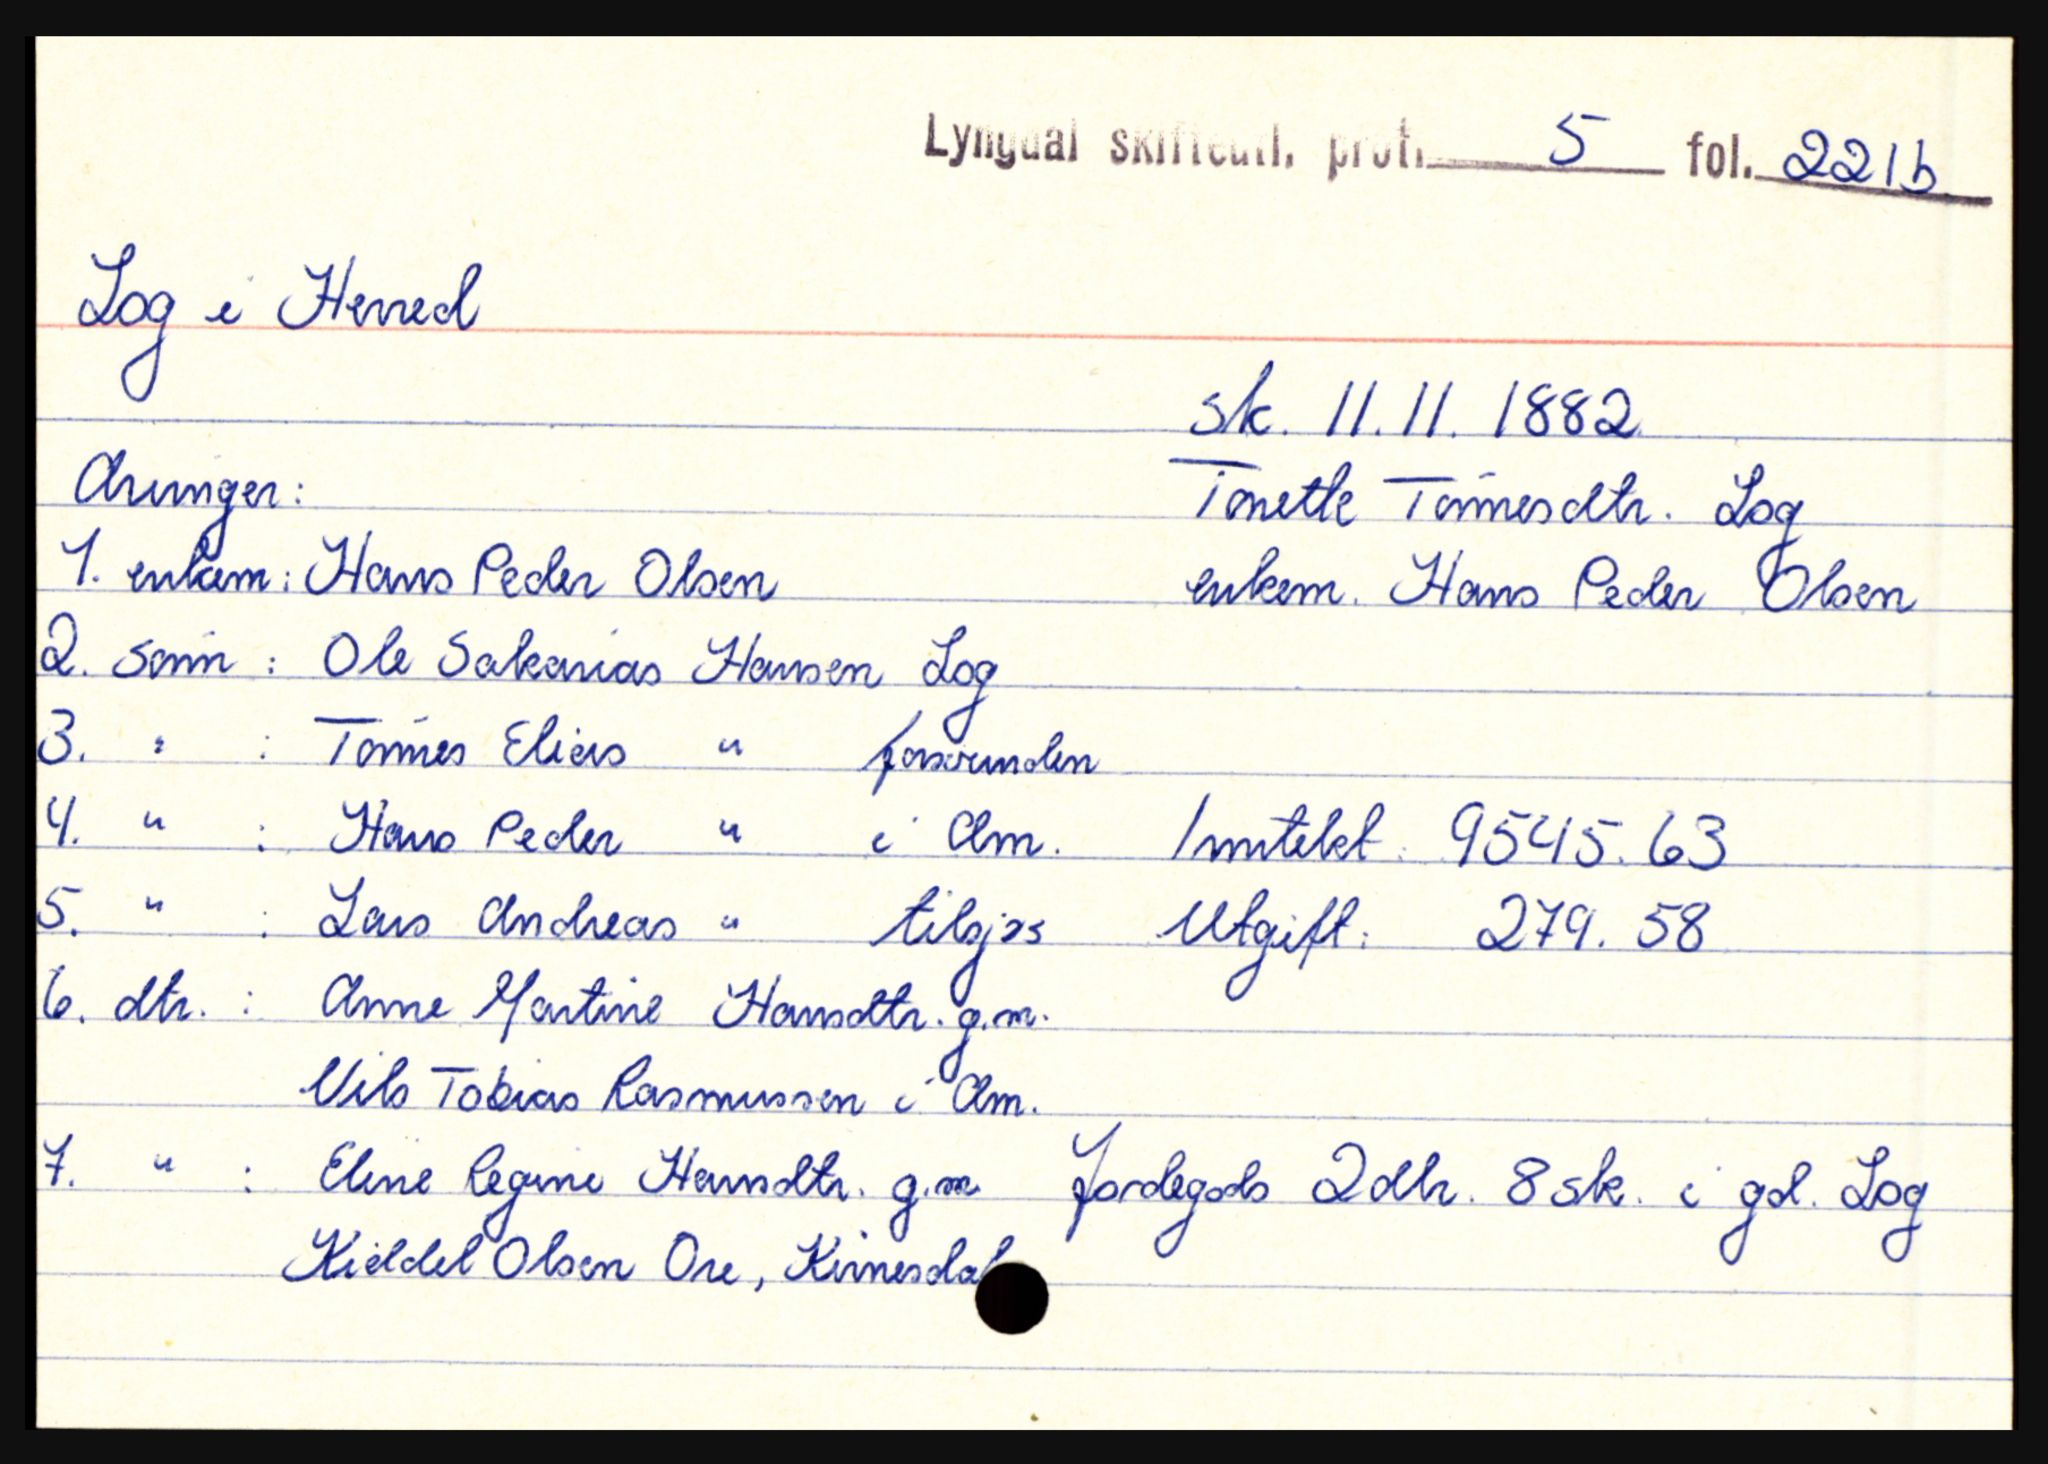 Lyngdal skifteutl. prot. 5 fol. 221b
Log i Herred
sk. 11.11.1882
Arvinger: Tonette Tønnesdtr. Log
1. enkem: Hans Peder Olsen enkem. Hans Peder Olsen
2. sønn: Ole Sakarias Hansen Log
3. " : Tønnes Elias " forsvunden
4. " : Hans Peder " i Am. Inntekt: 9545.63
5. " : Lars Andreas " tilsjøs Utgift: 279.58
6. dtr. : Anne Martine Hansdtr. g.m.
Nils Tobias Rasmussen i Am.
7. " : Eline Regine Hansdtr. g.m. Jordegods 2 dlr. 8 sk. i gd. Log
Kieldel Olsen Ore, Kvinesdal